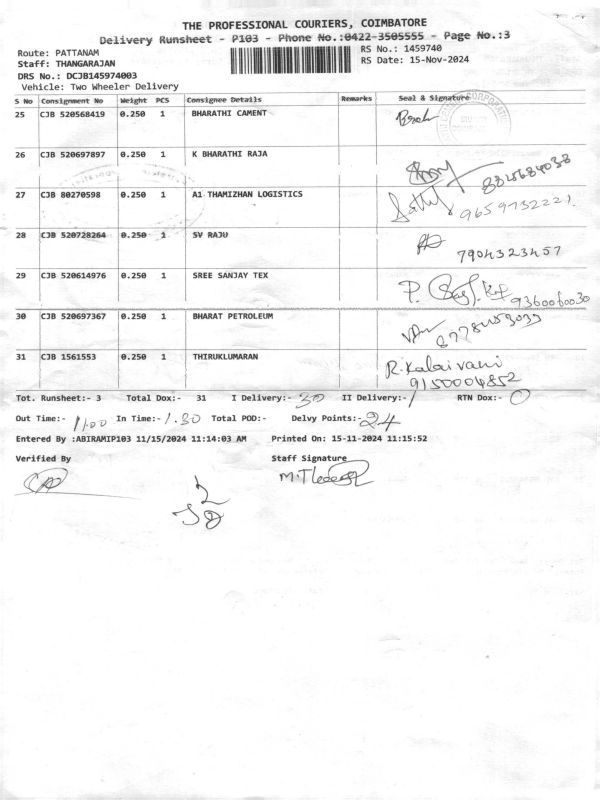 THE PROFESSIONAL COURIERS, COIMBATORE
Delivery Runsheet - P103 - Phone No.:0422-3505555 - Page No.:3
Route: PATTANAM RS No.: 1459740
Staff: THANGARAJAN RS Date: 15-Nov-2024
DRS No.: DCJB145974003
Vehicle: Two Wheeler Delivery
S No Consignment No Weight PCS Consignee Details Remarks Seal & Signature
25 CJB 520568419 0.250 1 BHARATHI CAMENT
26 CJB 520697897 0.250 1 K BHARATHI RAJA
27 CJB 80270598 0.250 1 A1 THAMIZHAN LOGISTICS 9659732221
28 CJB 520728264 0.250 1 SV RAJU 7904323457
29 CJB 520614976 0.250 1 SREE SANJAY TEX 9360060030
30 CJB 520697367 0.250 1 BHARAT PETROLEUM
31 CJB 1561553 0.250 1 THIRUKLUMARAN R.Kalaivani
9150004852
Tot. Runsheet:- 3 Total Dox:- 31 I Delivery:- 30 II Delivery:- 1 RTN Dox:- 0
Out Time:- 11.00 In Time:- 1.30 Total POD:- Delvy Points:- 24
Entered By :ABIRAMIP103 11/15/2024 11:14:03 AM Printed On: 15-11-2024 11:15:52
Verified By Staff Signature